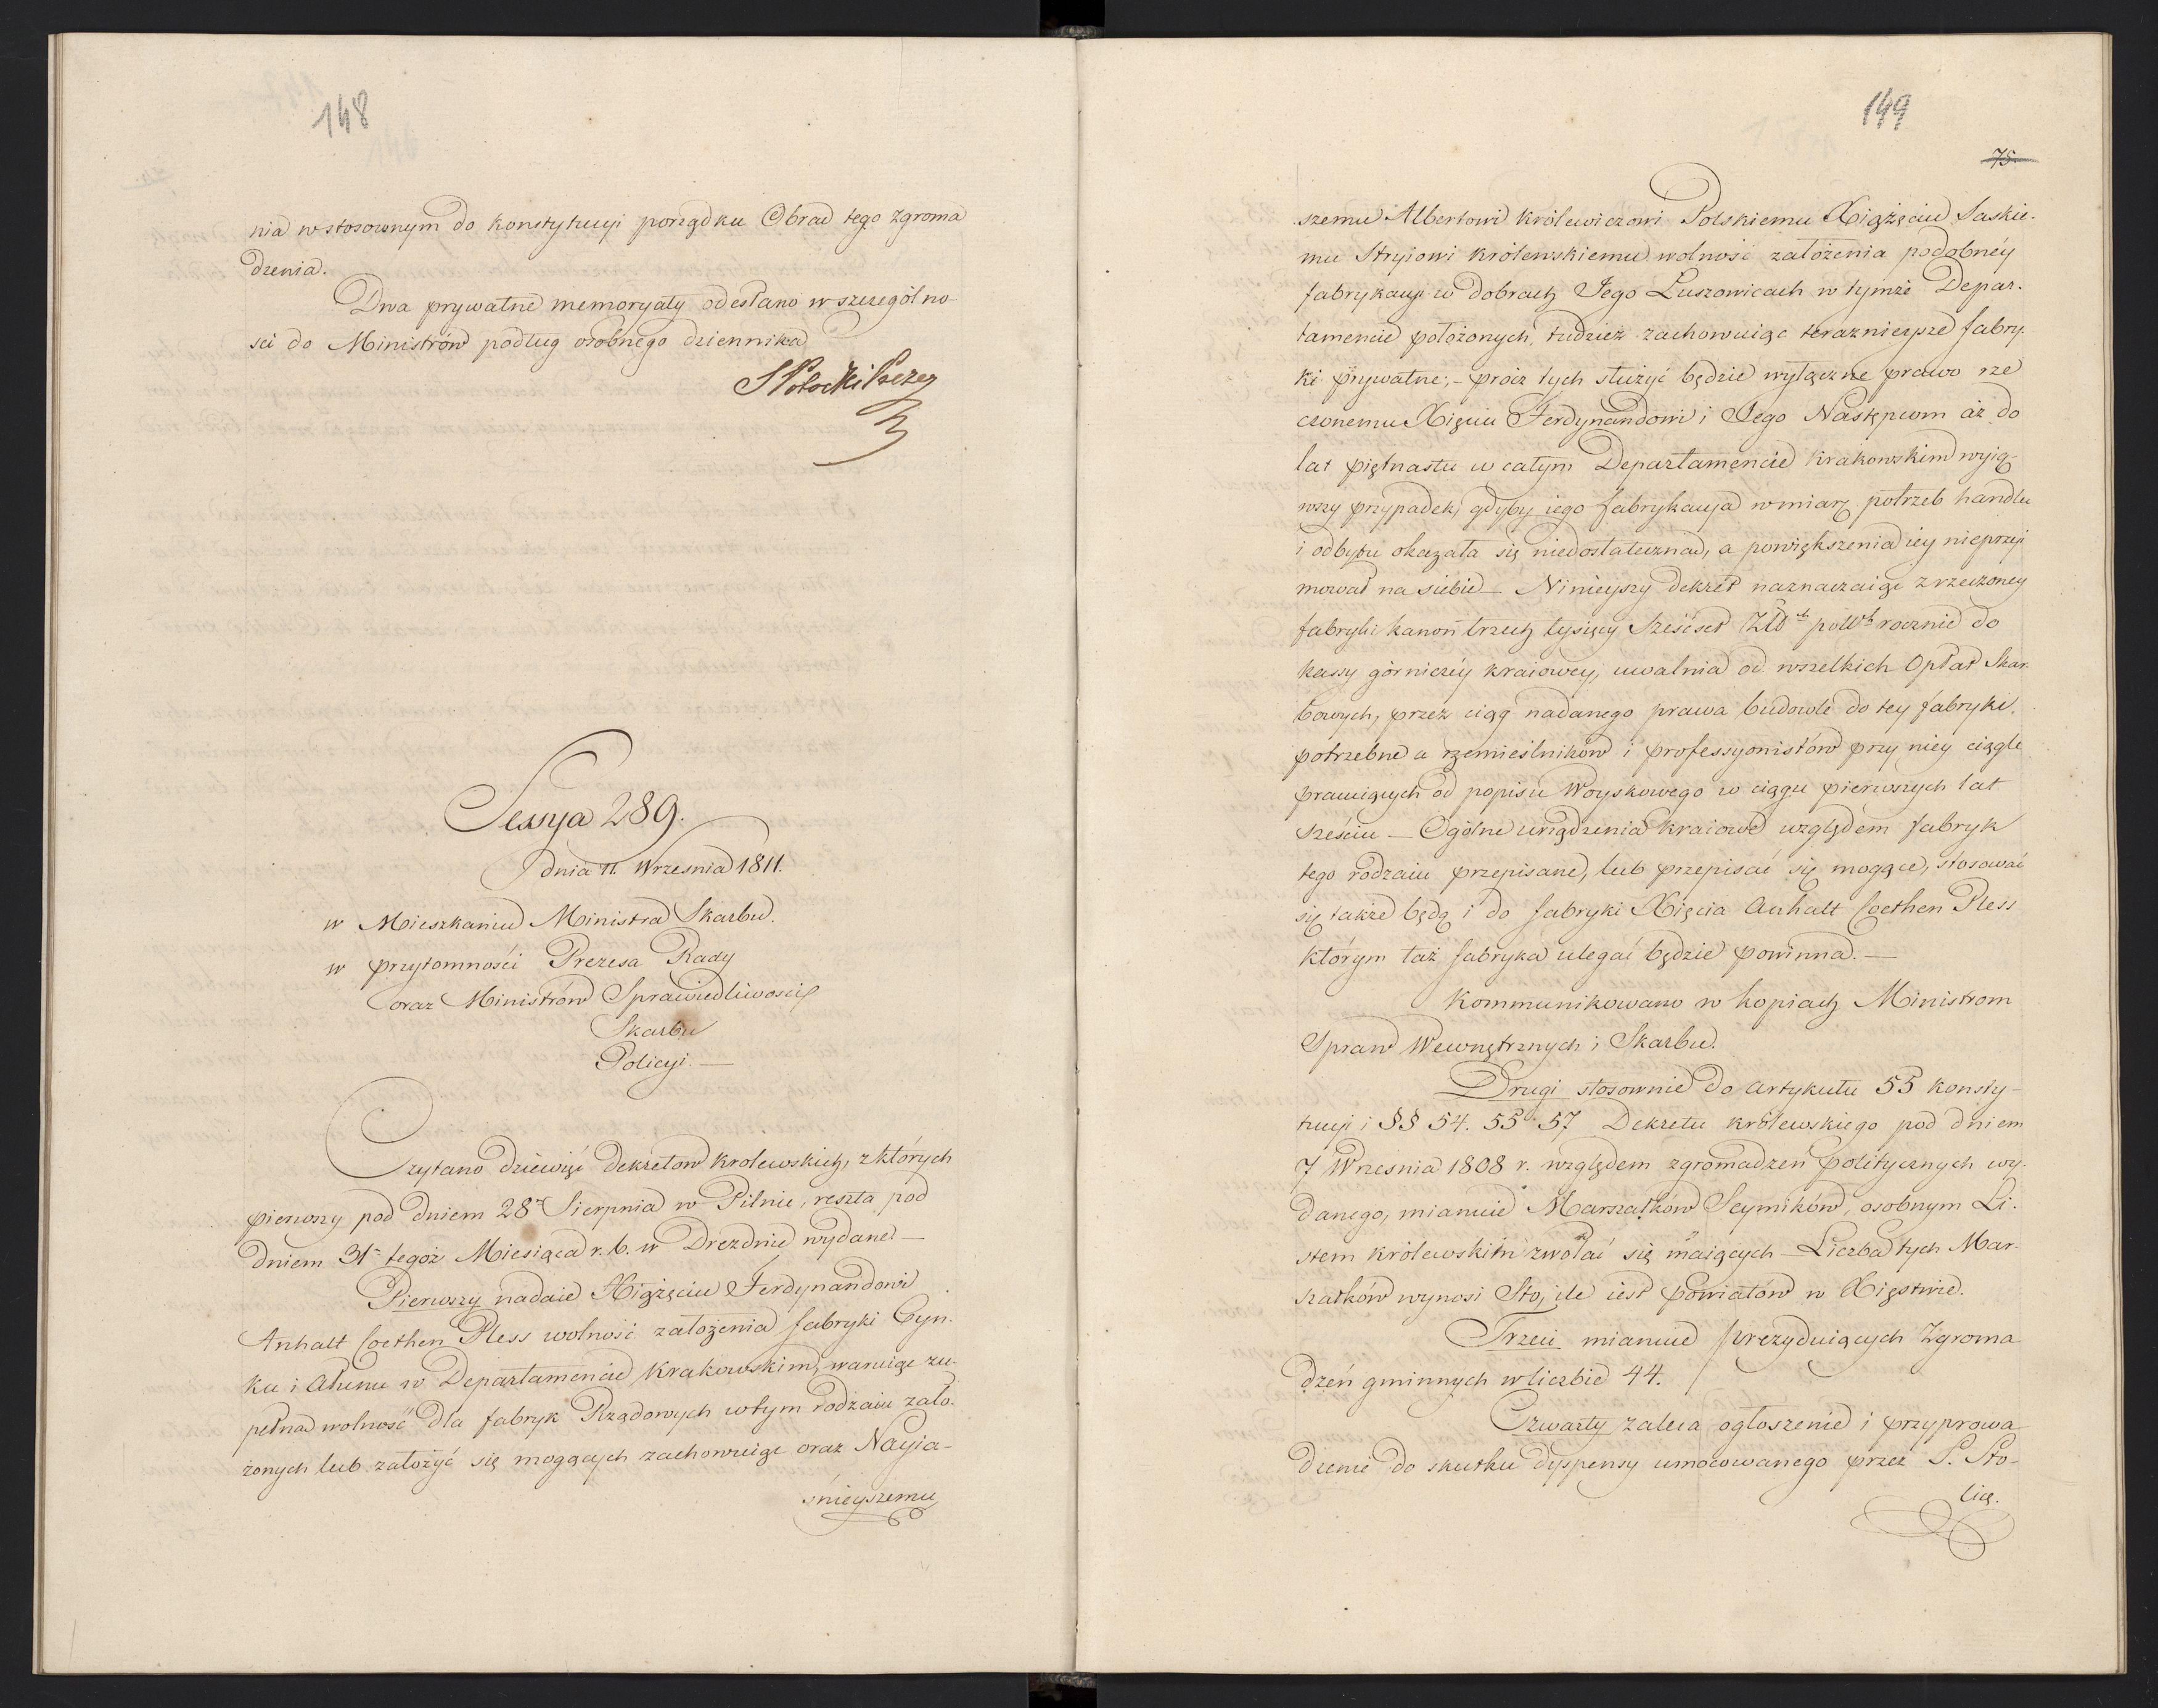 148
nia w stosownym do konstytucyi porządku Obrad tego zgroma
dzenia.
Dwa prywatne memoryały odesłano w szczególno-
sci do Ministrów podług osobnego dziennika
S Potocki Prezes
Sessya 289.
dnia 11. Wrzesnia 1811.
w Mieszkaniu Ministra Skarbu.
w przytomności Prezesa Rady
oraz Ministrów Sprawiedliwości
Skarbu
Policyi. —
Czytano dziewięć dekretow krolewskich, z których
pierwszy pod dniem 28. Sierpnia w Pilnie, reszta pod
dniem 31. tegoż Miesiąca r. b. w Dreznie wydane. —
Pierwszy nadaie Xiążęciu Ferdynandowi
Anhalt Coethen Pless wolność założenia fabryki Cyn-
ku i Ałunu w Departamencie Krakowskim, waruiąc zu-
pełna wolność dla fabryk Rządowych w tym rodzaiu zało-
żonych lub założyć się mogących zachowuiąc oraz Nayia-
śnieyszemu
149
75
szemu Albertowi Królewiczowi Polskiemu Xiążęciu Saskie-
mu Stryiowi królewskiemu wolność założenia podobnéy
fabrykacyi w dobrach Jego Luszowicach w tymże Depar-
tamencie położonych, tudzież zachowuiąc teraznieysze fabry-
ki prywatne; – prócz tych służyć będzie wyłączne prawo rze
czonemu Xięciu Ferdynandowi i Jego Następcom aż do
lat piętnastu w całym Departamencie Krakowskim wyią-
wszy przypadek, gdyby iego fabrykacya w miarę potrzeb handlu
i odbytu okazała się niedostateczna, a powiększenia iey nieprzyi
mował na siebie — Ninieyszy dekret naznaczaiąc z rzeczoney
fabryki kanon trzech tysięcy Sześćset Złtch polch rocznie do
kassy górniczéy kraiowey, uwalnia od wszelkich Opłat Skar-
bowych, przez ciąg nadanego prawa budowle do tey fabryki
potrzebne a rzemieślników i professyonistów przy niey ciągle
pracuiących od popisu Woyskowego w ciągu pierwszych lat
sześciu — Ogólne urządzenia kraiowe względem fabryk
tego rodzaiu przepisane, lub przepisać się mogące, stosować
się także będą i do fabryki Xięcia Anhalt Coethen Pless
którym taż fabryka ulegać będzie powinna. —
Kommunikowano w kopiach Ministrom
Spraw Wewnętrznych i Skarbu.
Drugi stosownie do artykułu 55 konsty-
tucyi i §§ 54. 55 57 Dekretu królewskiego pod dniem
7 Wrzesnia 1808 r. względem zgromadzen politycznych wy-
danego, mianuie Marszałków Seymików, osobnym Li-
stem królewskim zwołać się maiących — Liczba tych Mar-
szałków wynosi Sto, ile iest powiatów w Xięstwie.
Trzeci mianuie prezyduiących Zgroma
dzeń gminnych w liczbie 44.
Czwarty zaleca ogłoszenie i przyprowa
dzenie do skutku dyspensy umocowanego przez S. Sto-
licę.